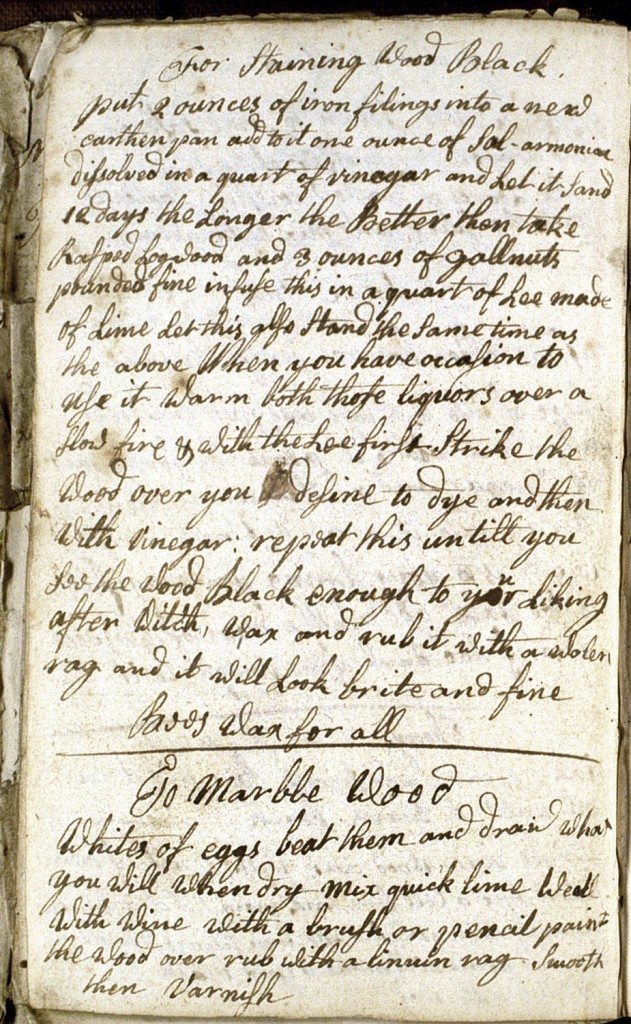 For Staining Wood Black.
put 2 ounces of iron filings into a new
earthen pan add to it one ounce of Sal-armoniac
dissolved in a quart of vinegar and Let it Sand
12 days the Longer the Better then take
Rasped Logwood and 3 ounces of gallnuts
pounded fine infuse this in a quart of Lee made
of Lime Let this also Stand the Same time as
the above When you have occasion to
use it Warm both those liquors over a
slow fire & with the Lee first Strike the
Wood over you desine to dye and then
With Vinegar: repeat this untill you
See the Wood Black enough to yor Liking
after Witch, Wax and rub it with a wolen
rag and it will Look brite and fine
Bees Wax for all
To Marble Wood
Whites of eggs beat them and draw what
you Will When dry mix quick lime Well
With Wine With a brush or pencil paint
the Wood over rub with a linuin rag Smooth
then Varnish